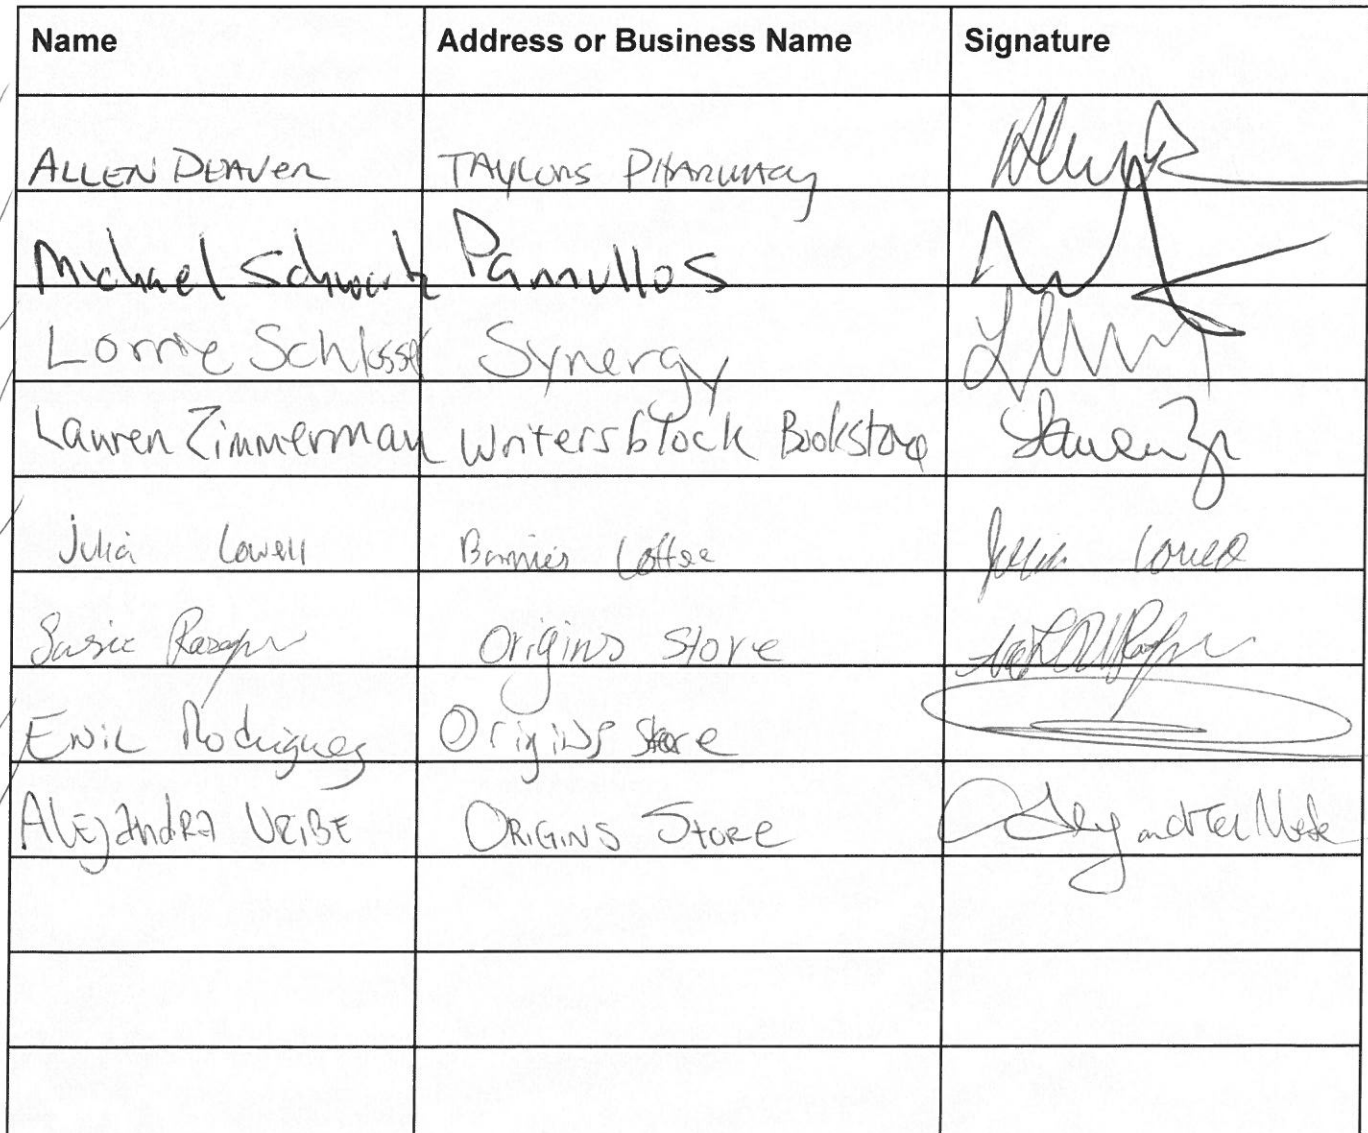 Name Address or Business Name Signature
ALLEN DEAVER TAYLORS PHARMACY
Michael Schwartz Pannullos
Lorrie Schlosse Synergy
Lauren Zimmerman Writersblock Bookstore
Julia Lowell Barnies Coffee Julia Lowell
Susie Origins Store
Enil Rodriguez Origins Store
Alejandra URIBE ORIGINS STORE